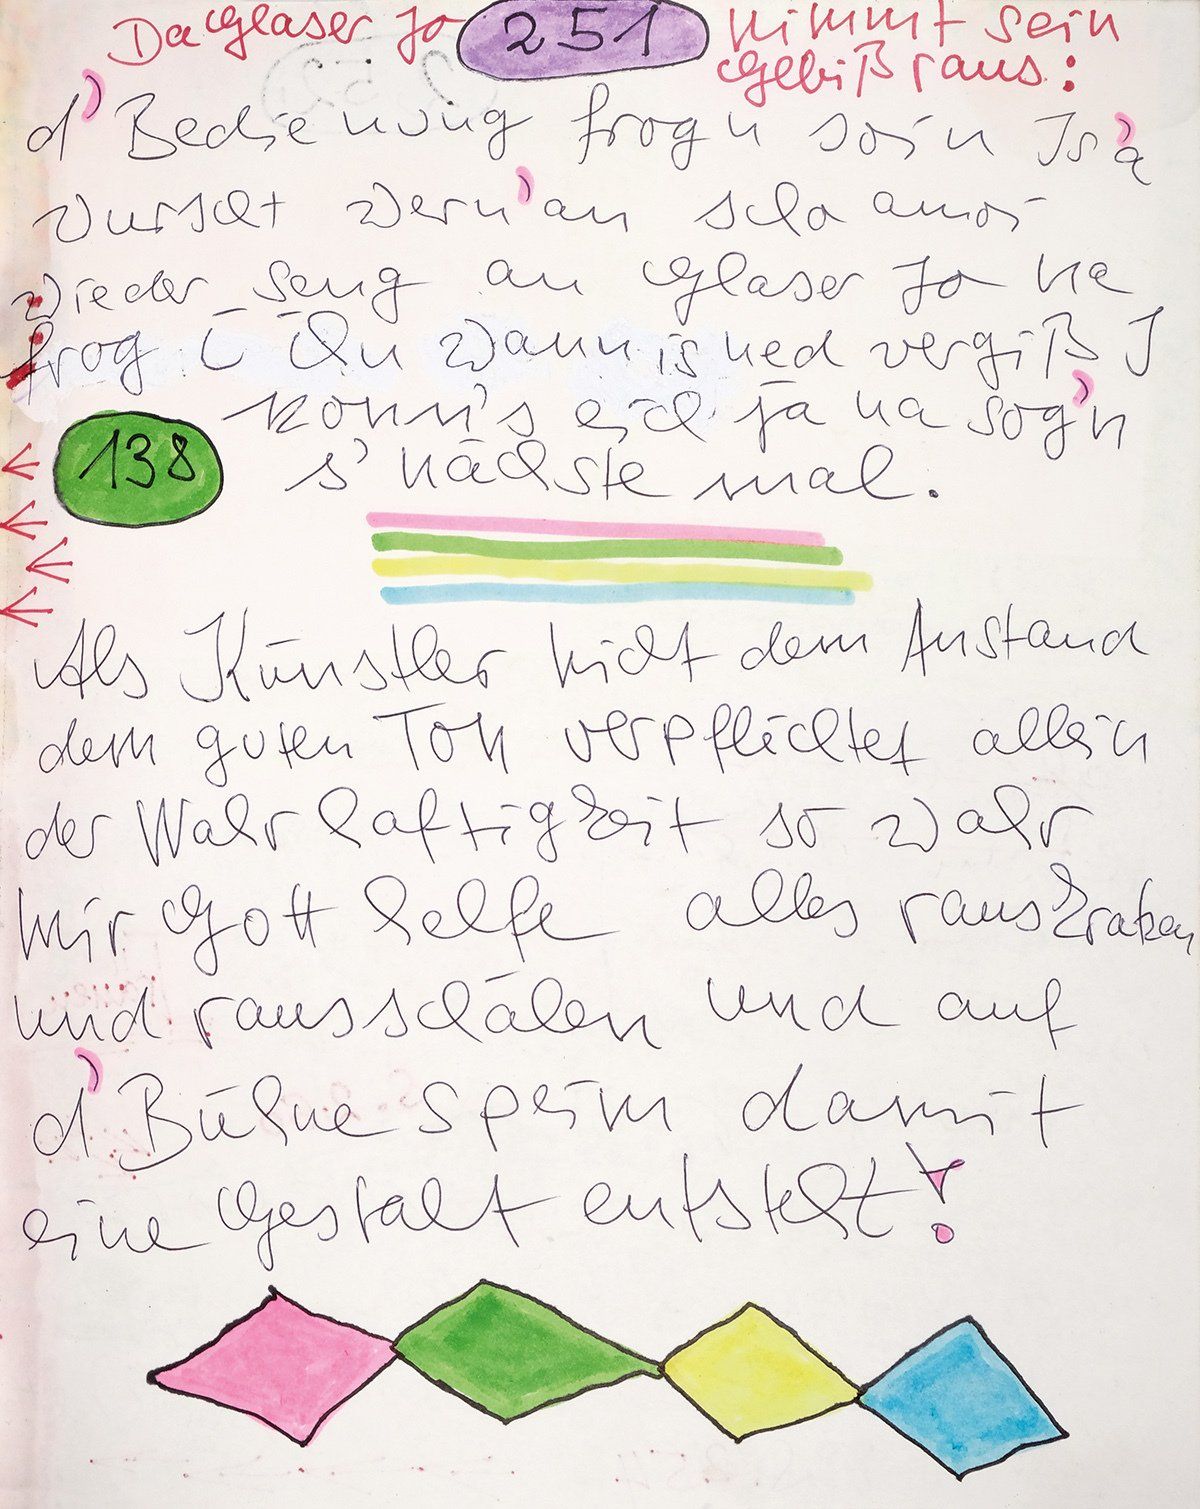 Da Glaser Jo 251 nimmt sein
Gebiß raus:
d' Bedienung frogn soin Is'a
Wurscht wern'an scho amoi
wieder seng an Glaser Jo na
frog i ihn wann is ned vergiß I
138 konn's eich ja na sog'n
s' nächste mal.
Als Künstler nicht dem Anstand
dem guten Ton verpflichtet allein
der Wahrhaftigkeit so wahr
mir Gott helfe alles rauskratzen
und rausschälen und auf
d' Bühne speim damit
eine Gestalt entsteht!